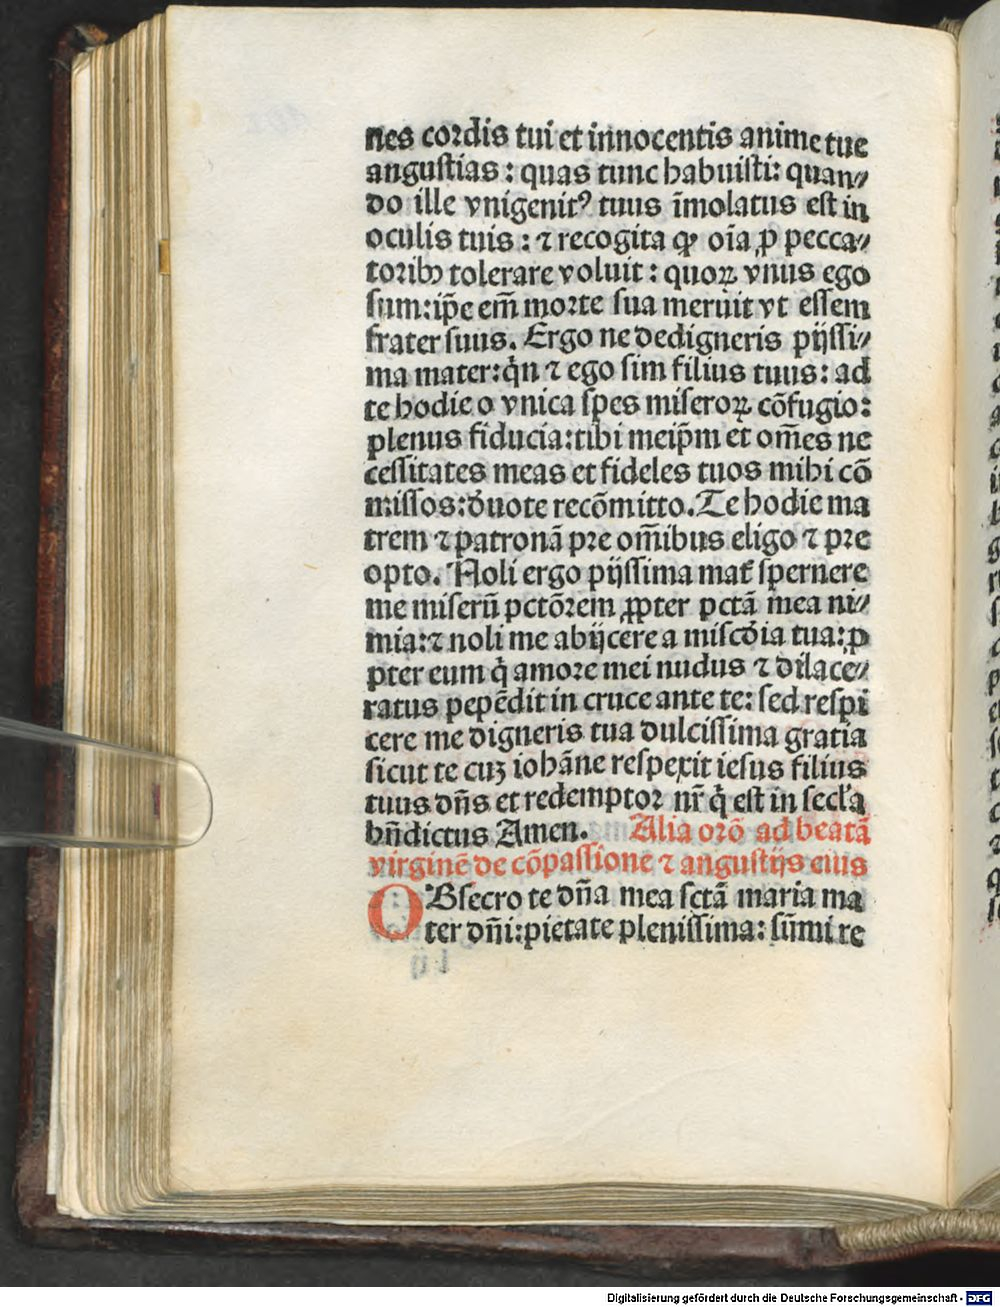 nes cordis tui et innocentis anime tue
angustias : quas tunc habuisti: quan⸗
do ille vnigenitꝰ tuus īmolatus est in
oculis tuis : ⁊ recogita ꝙ oīa ꝓ pecca⸗
toribꝫ tolerare voluit : quoꝝ vnus ego
sum: ip̄e em̄ morte sua meruit vt essem
frater suus. Ergo ne dedigneris pijssi⸗
ma mater: q̄n ⁊ ego sim filius tuus: ad
te hodie o vnica spes miseroꝝ cōfugio:
plenus fiducia: tibi meip̄m et om̄es ne
cessitates meas et fideles tuos mihi cō
missos: đuote recōmitto. Te hodie ma
trem ⁊ patronā pre om̄ibus eligo ⁊ pre
opto. Noli ergo pijssima mat̄ spernere
me miserū pctōrem ꝓpter pctā mea ni⸗
mia: ⁊ noli me abijcere a miscđia tua: ꝓ
pter eum q̇ amore mei nudus ⁊ dilace⸗
ratus pepēdit in cruce ante te: sed respi
cere me digneris tua dulcissima gratia
sicut te cuꝫ iohāne respexit iesus filius
tuus dn̄s et redemptor nr̄ q̇ est in secl̄a
bn̄dictus Amen. Alia orō ad beatā
virginē de cōpassione ⁊ angustijs eius
OBsecro te dn̄a mea sctā maria ma
ter dn̄i: pietate plenissima: sūmi re
Digitalisierung gefördert durch die Deutsche Forschungsgemeinschaft - DFG